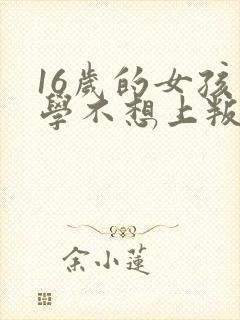 16歲的女孩
學不想上叛
余小蓮